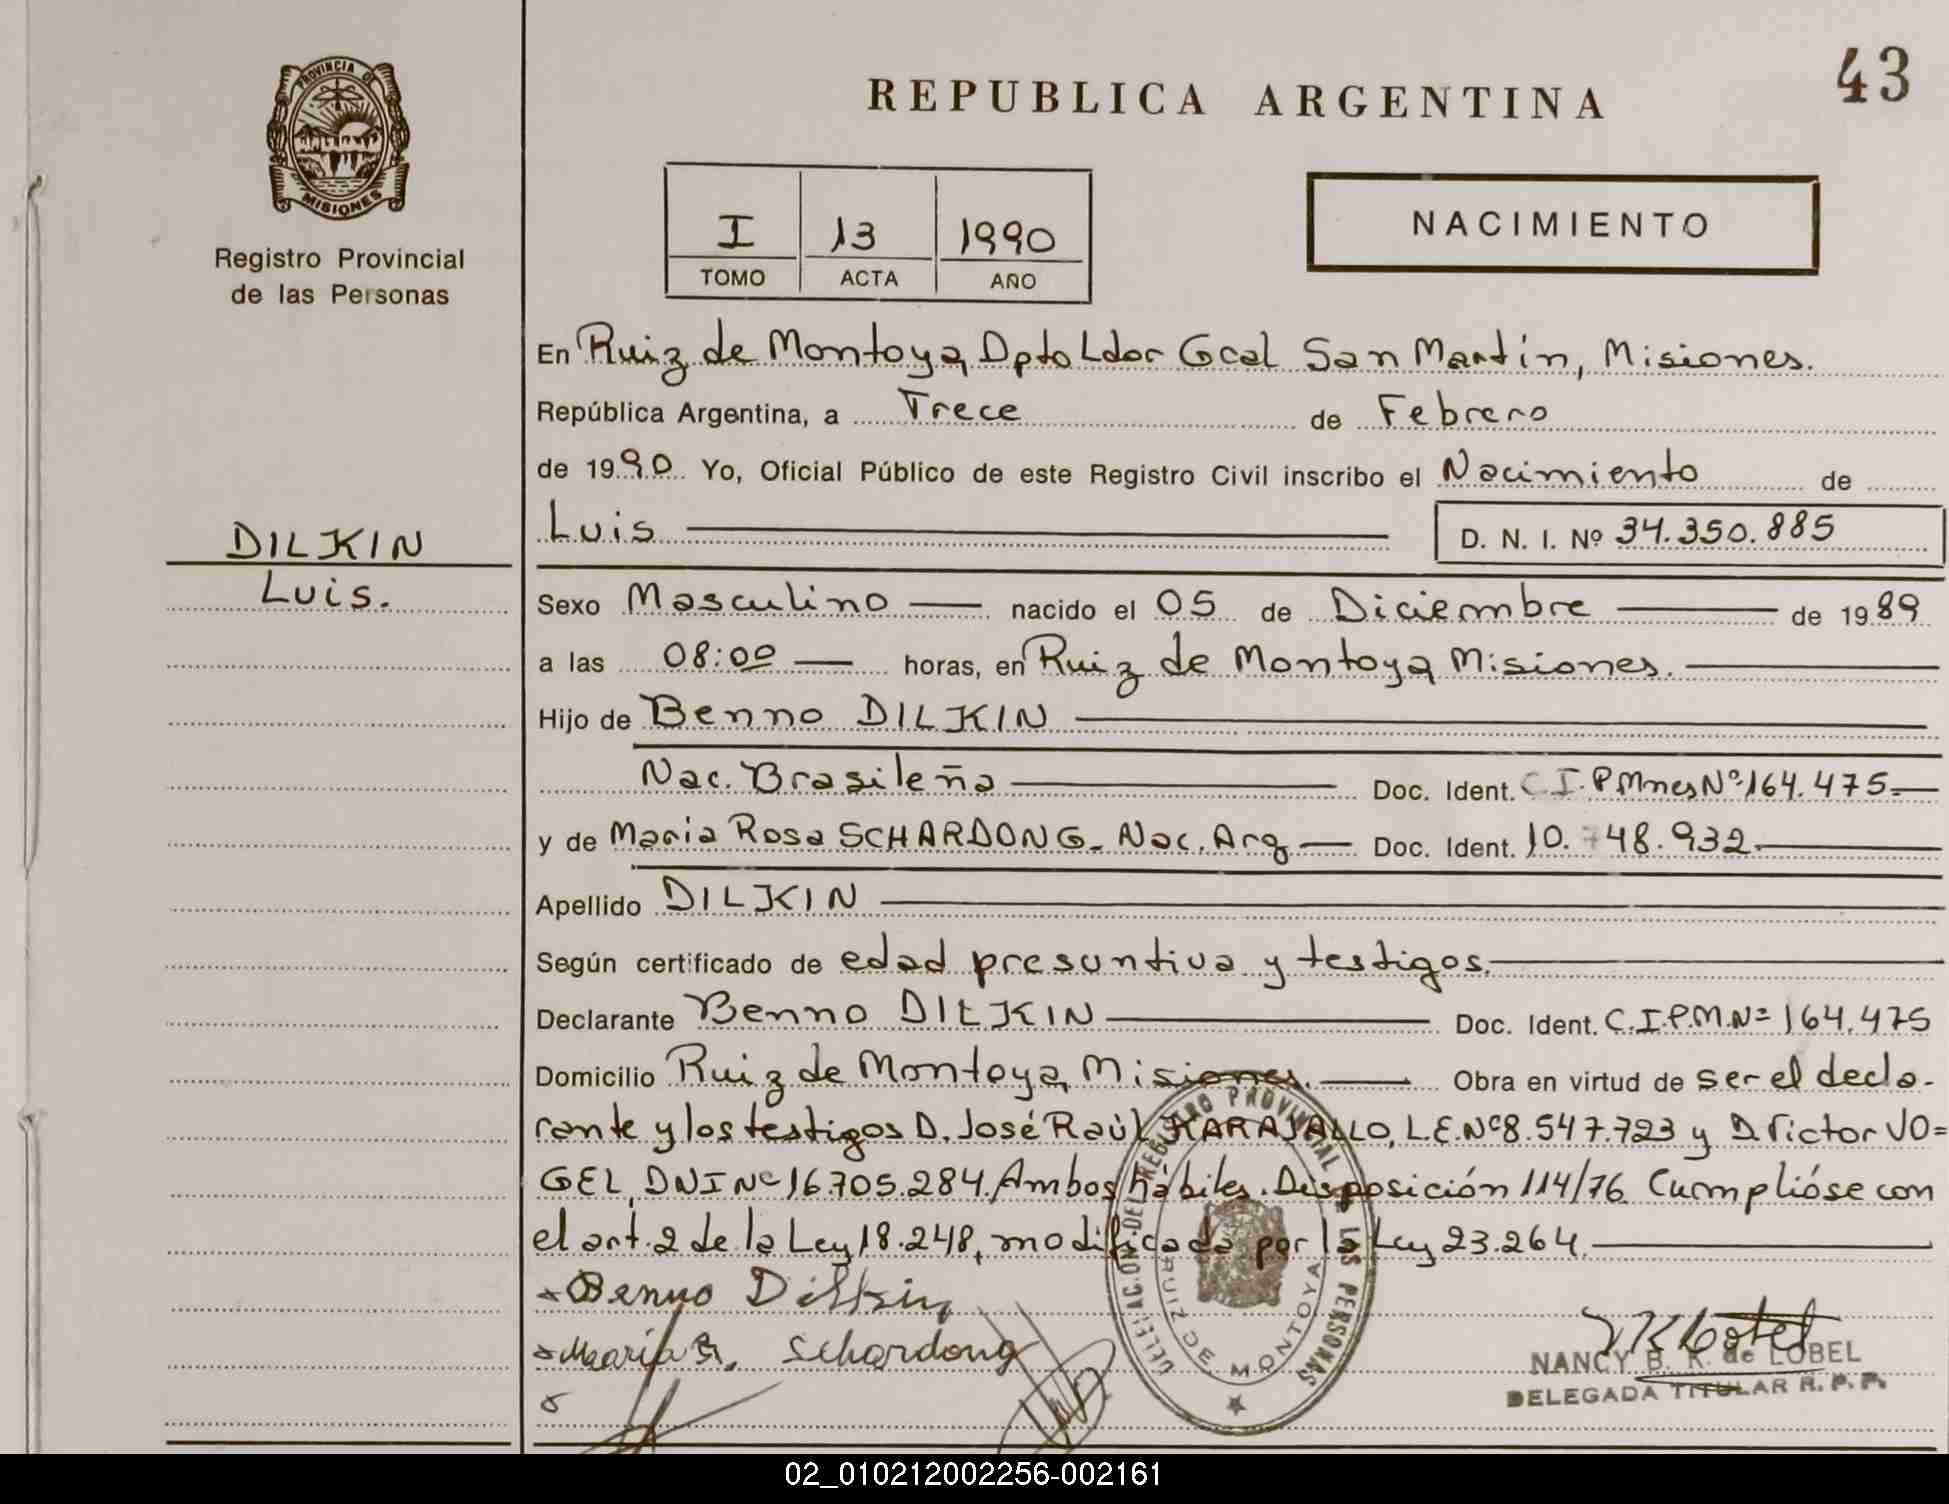 43
REPUBLICA ARGENTINA
PROVINCIA DE
MISIONES
Registro Provincial
de las Personas
I 13 1990
TOMO ACTA AÑO
NACIMIENTO
En Ruiz de Montoya, Dpto Ldor Gral San Martín, Misiones.
República Argentina, a Trece de Febrero
de 1990 Yo, Oficial Público de este Registro Civil inscribo el Nacimiento de
Luis D. N. I. Nº 34.350.885
DILKIN
Luis.
Sexo Masculino nacido el 05 de Diciembre de 1989
a las 08:00 horas, en Ruiz de Montoya Misiones.
Hijo de Benno DILKIN
Nac. Brasileña Doc. Ident. C.I.P.MnesNº 164.475.
y de Maria Rosa SCHARDONG. Nac. Arg Doc. Ident. 10.748.932.
Apellido DILKIN
Según certificado de edad presuntiva y testigos.
Declarante Benno DILKIN Doc. Ident. C.I.P.M.Nº 164.475
Domicilio Ruiz de Montoya, Misiones. Obra en virtud de ser el decla-
rante y los testigos D. José Raúl KARAJALLO, L.E.Nº 8.547.723 y D. Victor VO=
GEL, DNI Nº 16.705.284. Ambos hábiles. Disposición 114/76 Cumplióse con
el art. 2 de la Ley 18.248, modificada por la Ley 23.264.
Benno Dilkin
Maria R. Schardong
DELEGACION DEL REGISTRO PROVINCIAL DE LAS PERSONAS
RUIZ DE MONTOYA
NANCY B. K. de LOBEL
DELEGADA TITULAR R. P. P.
02_010212002256-002161